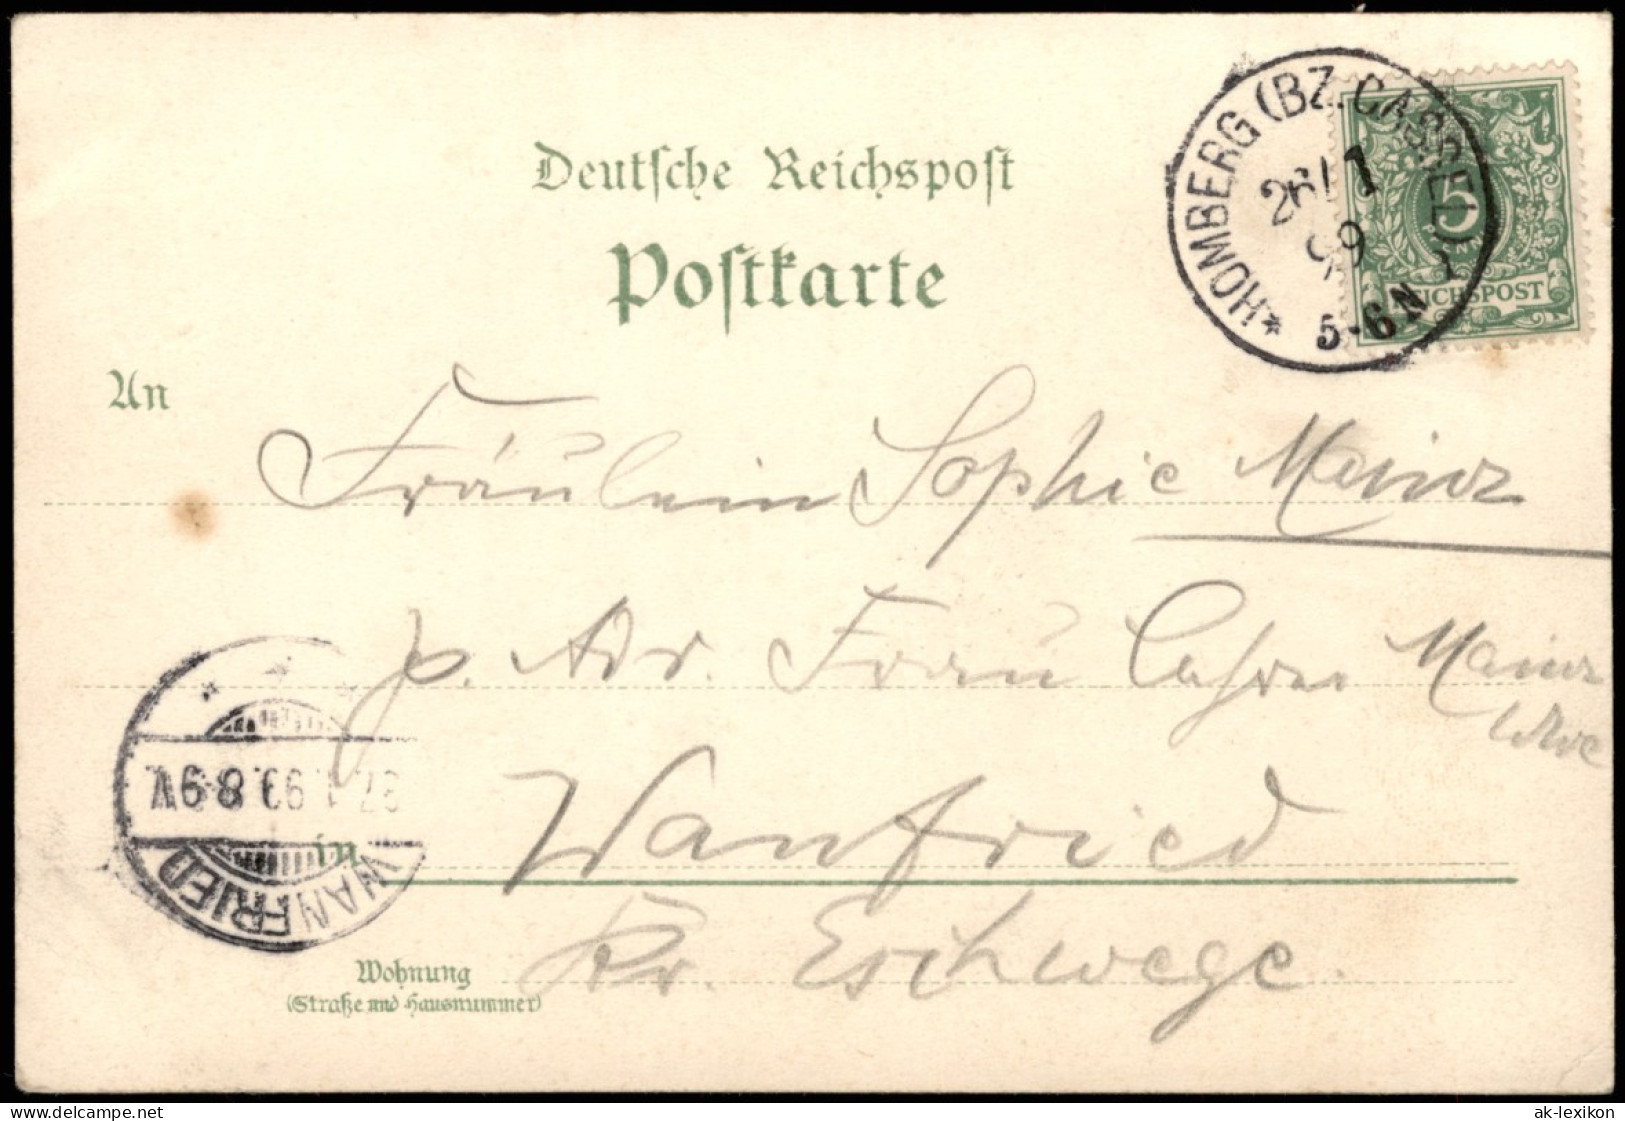 Deutsche Reichspost
Postkarte
*HOMBERG (BZ. CASSEL)
26/1
99
5-6N
5
REICHSPOST
An
Fräulein Sophie Mainz
p. Adr. Frau Mainz
Wwe
Wanfried
in
Kr. Eschwege.
27.1.99. 8-9V.
WANFRIED
Wohnung
(Straße und Hausnummer)
delcampe.net
ak-lexikon